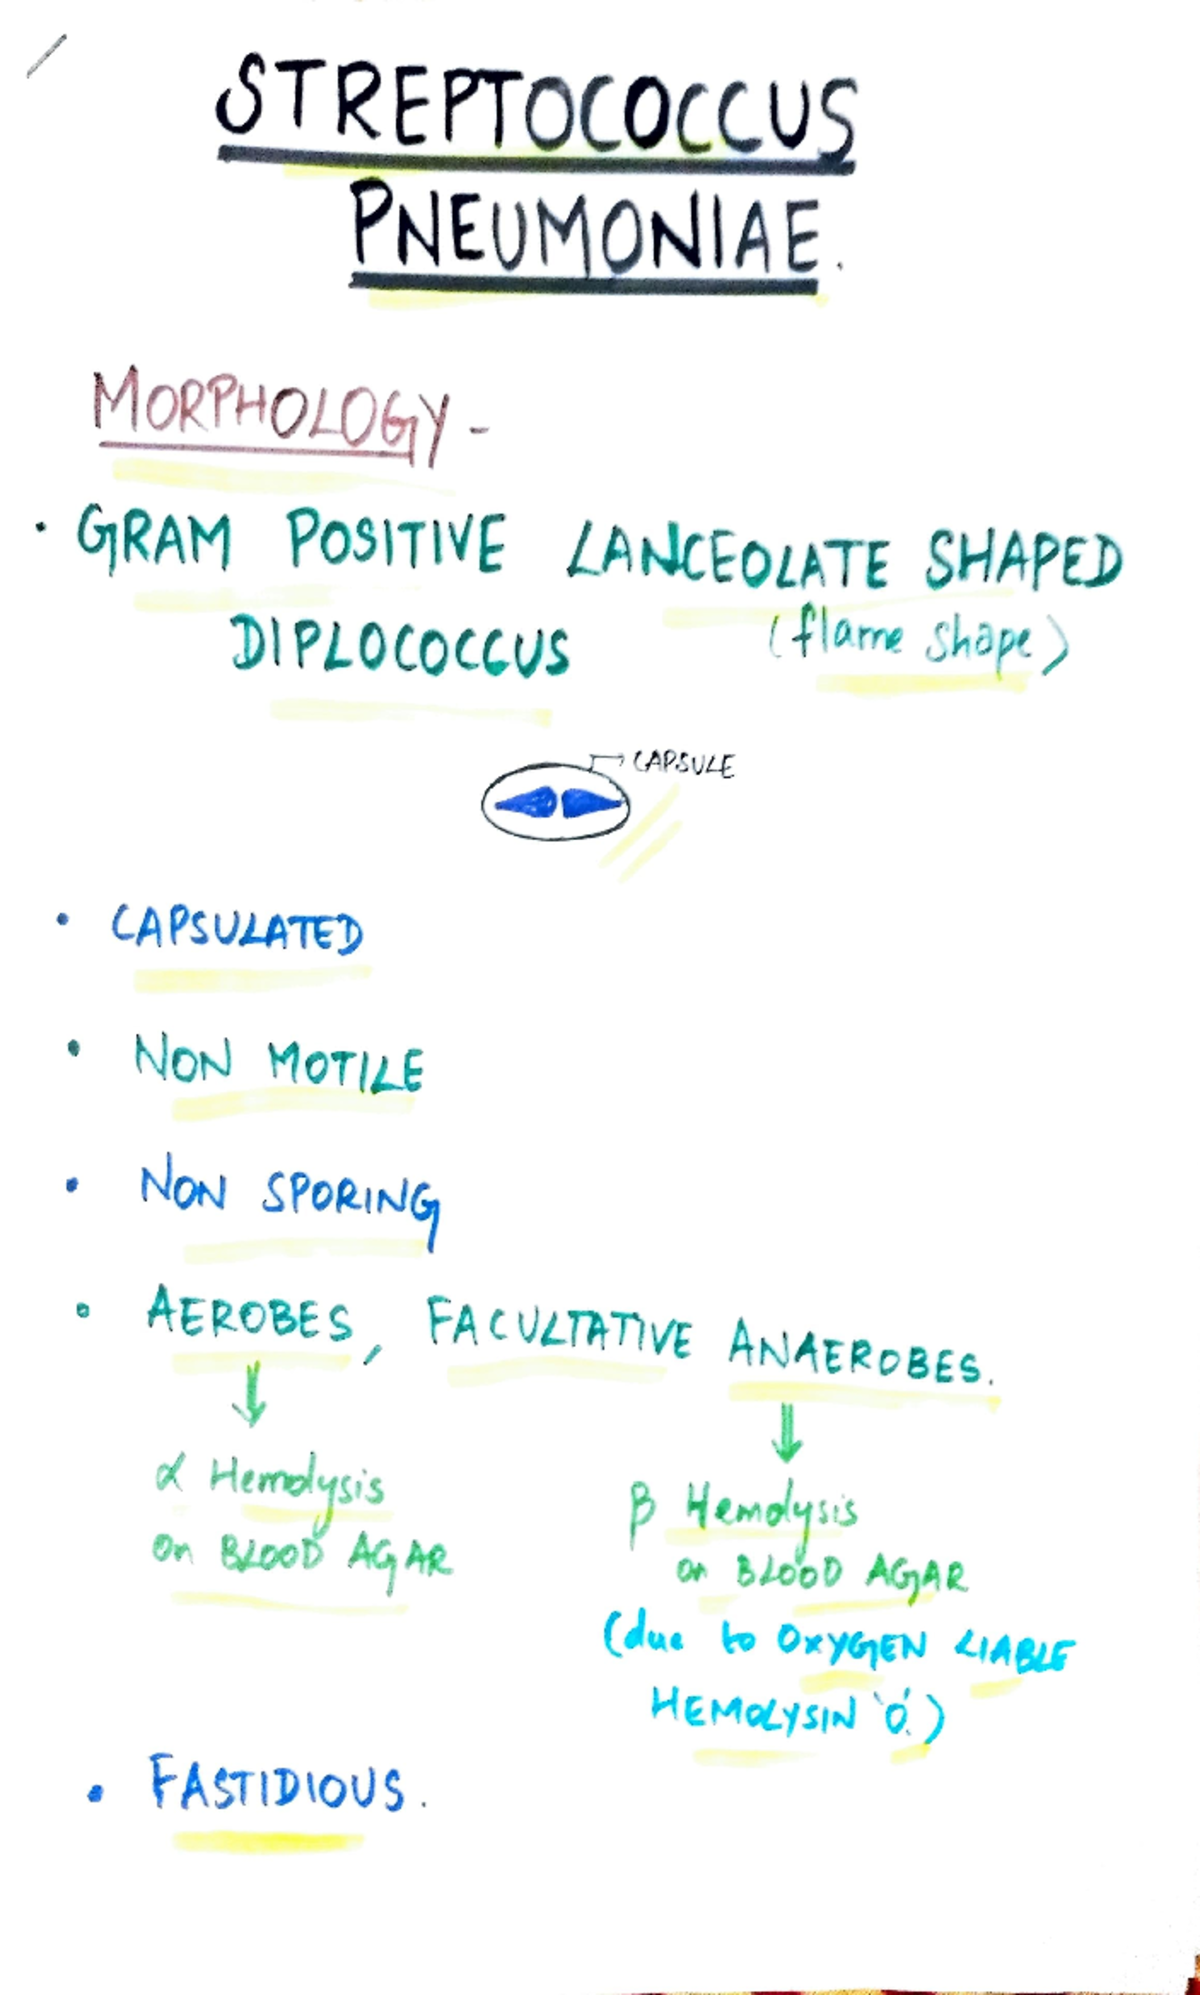 STREPTOCOCCUS
PNEUMONIAE.
MORPHOLOGY -
• GRAM POSITIVE LANCEOLATE SHAPED
DIPLOCOCCUS (flame shape)
→ CAPSULE
• CAPSULATED
• NON MOTILE
• NON SPORING
• AEROBES, FACULTATIVE ANAEROBES.
↓ ↓
α Hemolysis
on BLOOD AGAR
β Hemolysis
on BLOOD AGAR
(due to OXYGEN LIABLE
HEMOLYSIN 'O'.)
• FASTIDIOUS.